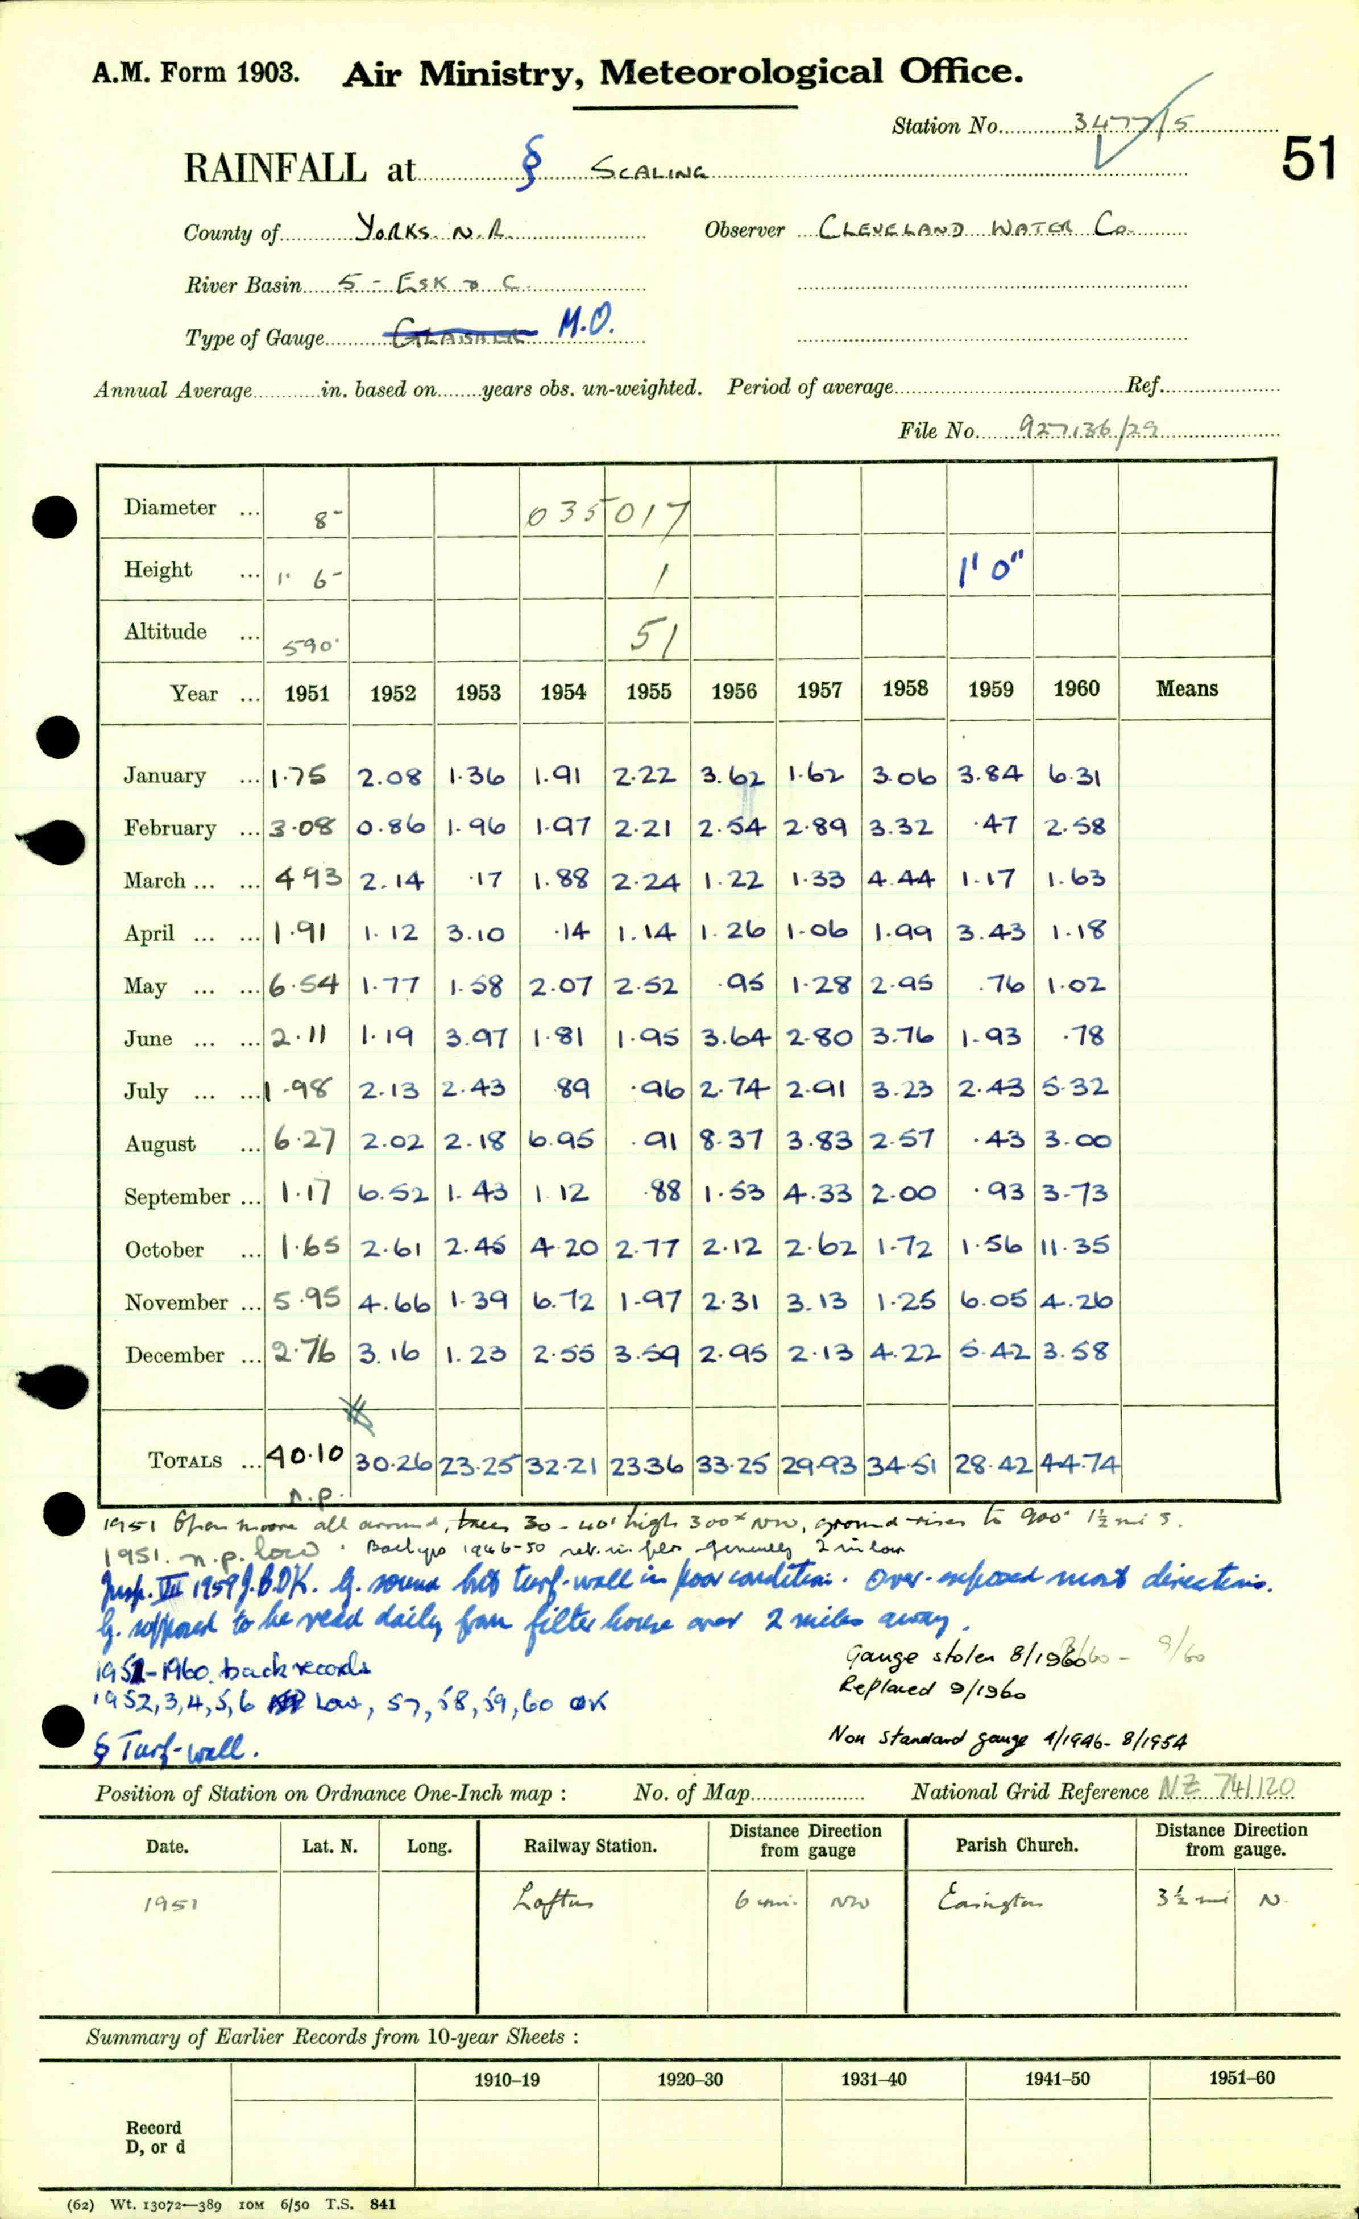 A.M. Form 1903. Air Ministry, Meteorological Office.
Station No. 3477/5
51
RAINFALL at § SCALING
County of YORKS. N.R. Observer CLEVELAND WATER Co.
River Basin 5 - ESK & C.
Type of Gauge GLAISHER M.O.
Annual Average in. based on years obs. un-weighted. Period of average Ref.
File No. 927136/29
Diameter ... 8" 035017
Height ... 1' 6" 1 1' 0"
Altitude ... 590' 51
Year ... 1951 1952 1953 1954 1955 1956 1957 1958 1959 1960 Means
January ... 1.75 2.08 1.36 1.91 2.22 3.62 1.62 3.06 3.84 6.31
February ... 3.08 0.86 1.96 1.97 2.21 2.54 2.89 3.32 .47 2.58
March ... ... 4 93 2.14 .17 1.88 2.24 1.22 1.33 4.44 1.17 1.63
April ... ... 1.91 1.12 3.10 .14 1.14 1.26 1.06 1.99 3.43 1.18
May ... ... 6.54 1.77 1.58 2.07 2.52 .95 1.28 2.95 .76 1.02
June ... ... 2.11 1.19 3.97 1.81 1.95 3.64 2.80 3.76 1.93 .78
July ... ... 1.98 2.13 2.43 .89 .96 2.74 2.91 3.23 2.43 5.32
August ... 6.27 2.02 2.18 6.95 .91 8.37 3.83 2.57 .43 3.00
September ... 1.17 6.52 1.43 1.12 .88 1.53 4.33 2.00 .93 3.73
October ... 1.65 2.61 2.45 4.20 2.77 2.12 2.62 1.72 1.56 11.35
November ... 5.95 4.66 1.39 6.72 1.97 2.31 3.13 1.25 6.05 4.26
December ... 2.76 3.16 1.23 2.55 3.59 2.95 2.13 4.22 5.42 3.58
TOTALS ... 40.10 30.26 23.25 32.21 23.36 33.25 29.93 34.51 28.42 44.74
n.p.
1951 Open moor all around, trees 30-40' high 300x NW, ground rises to 900' 1½ mi S.
1951. n.p. low. 1946-50 generally 2 in low
Insp. VII 1959 J.B.D.K. G. sound but turf-wall in poor condition. Over-exposed most directions.
G. supposed to be read daily from filter house over 2 miles away.
Gauge stolen 8/1960 9/60
1951-1960. back records
Replaced 9/1960
1952,3,4,5,6 Low, 57,58,59,60 OK
Non standard gauge 4/1946- 8/1954
§ Turf-wall.
Position of Station on Ordnance One-Inch map : No. of Map National Grid Reference NZ 741120
Date. Lat. N. Long. Railway Station. Distance from Direction gauge Parish Church. Distance from Direction gauge.
1951 Loftus 6 mi. NW Easington 3½ mi N
Summary of Earlier Records from 10-year Sheets :
1910–19 1920–30 1931–40 1941–50 1951–60
Record
D, or d
(62) Wt. 13072—389 10M 6/50 T.S. 841